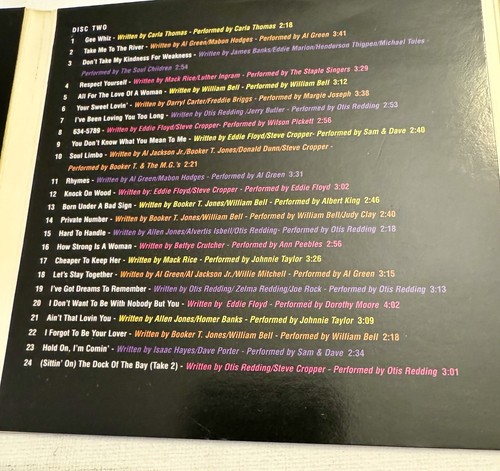 DISC TWO
1 Gee Whiz - Written by Carla Thomas - Performed by Carla Thomas 2:18
2 Take Me To The River - Written by Al Green/Mabon Hodges - Performed by Al Green 3:41
3 Don't Take My Kindness For Weakness - Written by James Banks/Eddie Marion/Henderson Thigpen/Michael Toles -
Performed by The Soul Children 2:54
4 Respect Yourself - Written by Mack Rice/Luther Ingram - Performed by The Staple Singers 3:29
5 All For The Love Of A Woman - Written by William Bell - Performed by William Bell 3:12
6 Your Sweet Lovin' - Written by Darryl Carter/Freddie Briggs - Performed by Margie Joseph 3:38
7 I've Been Loving You Too Long - Written by Otis Redding /Jerry Butler - Performed by Otis Redding 2:53
8 634-5789 - Written by Eddie Floyd/Steve Cropper- Performed by Wilson Pickett 2:56
9 You Don't Know What You Mean To Me - Written by Eddie Floyd/Steve Cropper- Performed by Sam & Dave 2:40
10 Soul Limbo - Written by Al Jackson Jr./Booker T. Jones/Donald Dunn/Steve Cropper -
Performed by Booker T. & The M.G.'s 2:21
11 Rhymes - Written by Al Green/Mabon Hodges - Performed by Al Green 3:31
12 Knock On Wood - Written by: Eddie Floyd/Steve Cropper - Performed by Eddie Floyd 3:02
13 Born Under A Bad Sign - Written by Booker T. Jones/William Bell - Performed by Albert King 2:46
14 Private Number - Written by Booker T. Jones/William Bell - Performed by William Bell/Judy Clay 2:40
15 Hard To Handle - Written by Allen Jones/Alvertis Isbell/Otis Redding- Performed by Otis Redding 2:18
16 How Strong Is A Woman - Written by Bettye Crutcher - Performed by Ann Peebles 2:56
17 Cheaper To Keep Her - Written by Mack Rice - Performed by Johnnie Taylor 3:26
18 Let's Stay Together - Written by Al Green/Al Jackson Jr./Willie Mitchell - Performed by Al Green 3:15
19 I've Got Dreams To Remember - Written by Otis Redding/ Zelma Redding/Joe Rock - Performed by Otis Redding 3:13
20 I Don't Want To Be With Nobody But You - Written by Eddie Floyd - Performed by Dorothy Moore 4:02
21 Ain't That Lovin You - Written by Allen Jones/Homer Banks - Performed by Johnnie Taylor 3:09
22 I Forgot To Be Your Lover - Written by Booker T. Jones/William Bell - Performed by William Bell 2:18
23 Hold On, I'm Comin' - Written by Isaac Hayes/Dave Porter - Performed by Sam & Dave 2:34
24 (Sittin' On) The Dock Of The Bay (Take 2) - Written by Otis Redding/Steve Cropper - Performed by Otis Redding 3:01